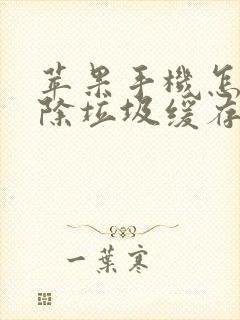 苹果手機怎
除垃圾缓存
一葉寒